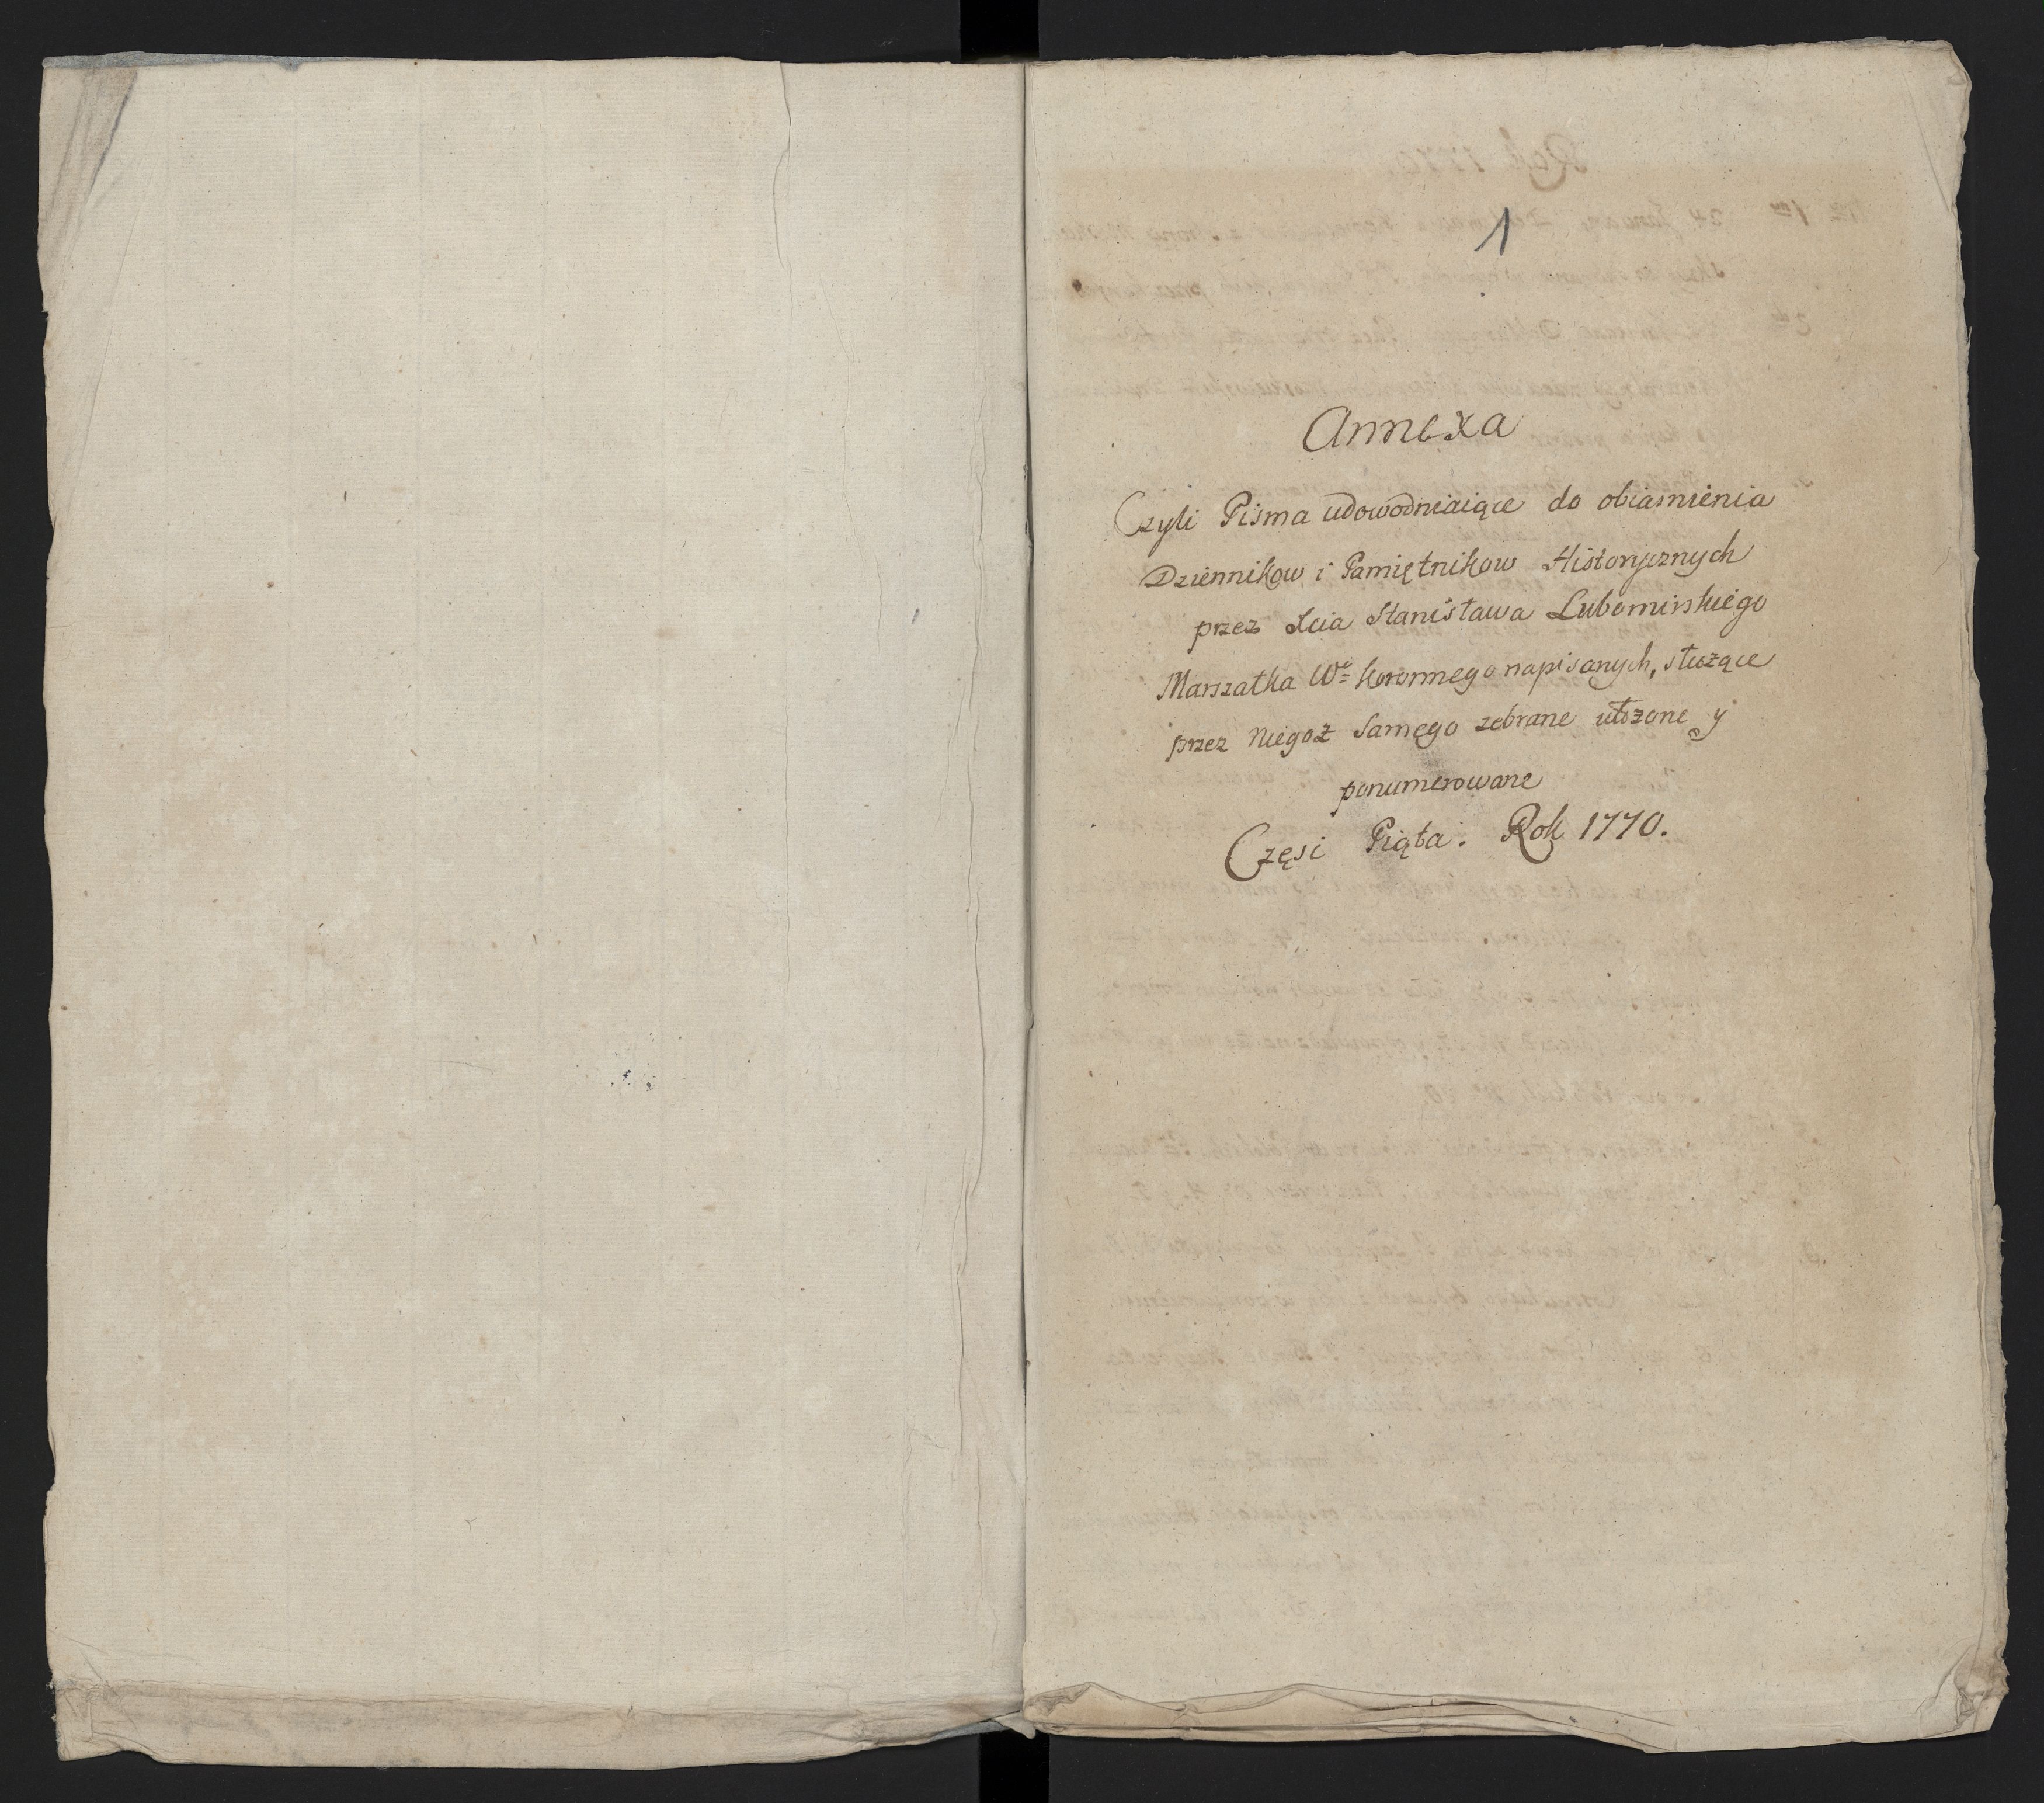 1
Annexa
Czyli Pisma udowodniaiące do obiasnienia
Dziennikow i Pamiętnikow Historycznych
przez Xcia Stanisława Lubomirskiego
Marszałka We Koronnego napisanych, służące
przez Niegoż Samęgo zebrane ułożone y
ponumerowane
Częsi Piąta. Rok 1770.